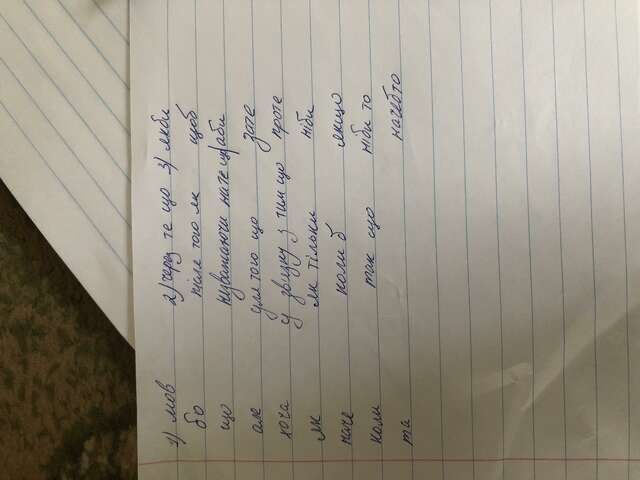 1) мов 2) через те що 3) якби
бо після того як щоб
що незважаючи на те що/аби
але для того що зате
хоча у звязку з тим що проте
як як тільки ніби
наче коли б якщо
коли так що ніби то
та начебто